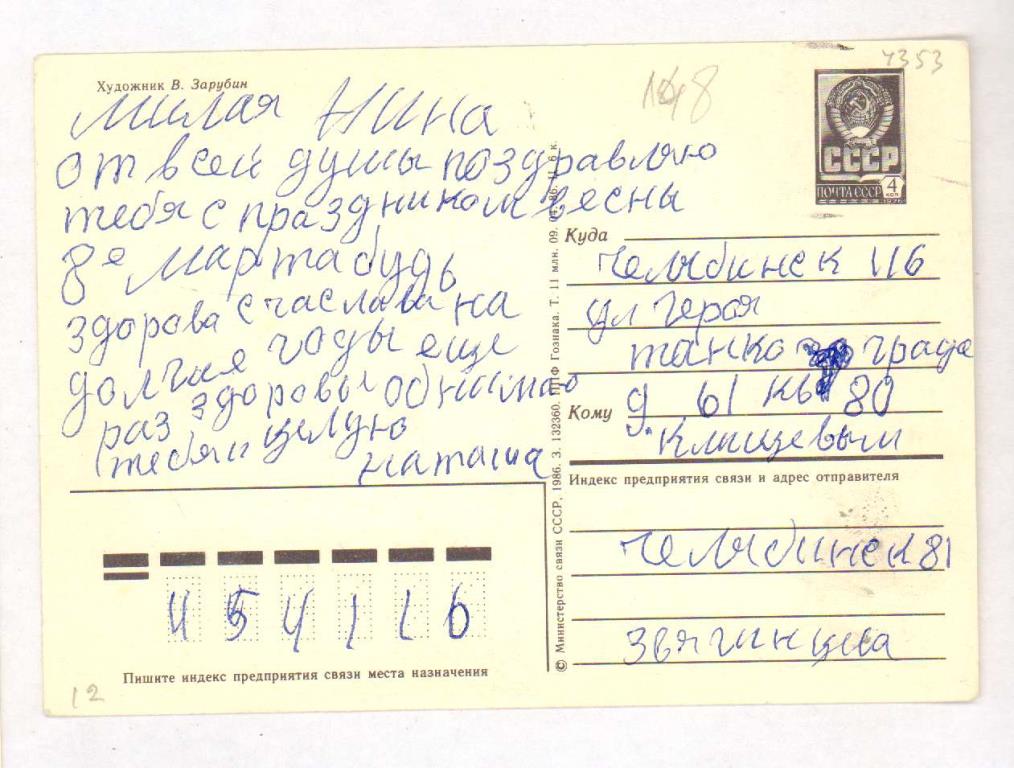 Художник В. Зарубин
148
4353
СССР
ПОЧТА СССР 4 КОП
1976
милая Нина
от всей душы поздравляю
тебя с праздником весны
8е марта будь
здорова счаслива на
долгие годы еще
раз здоровы обнимаю
тебя и целую
наташа
Куда
Челябинск 116
ул героя
танко града
д 61 кв 80
Кому
Клищевым
Индекс предприятия связи и адрес отправителя
Челябинск 81
Звягинцева
454116
Пишите индекс предприятия связи места назначения
12
© Министерство связи СССР, 1986. З. 132360. ППФ Гознака. Т. 11 млн. 09. 04. 86. Ц. 6 к.